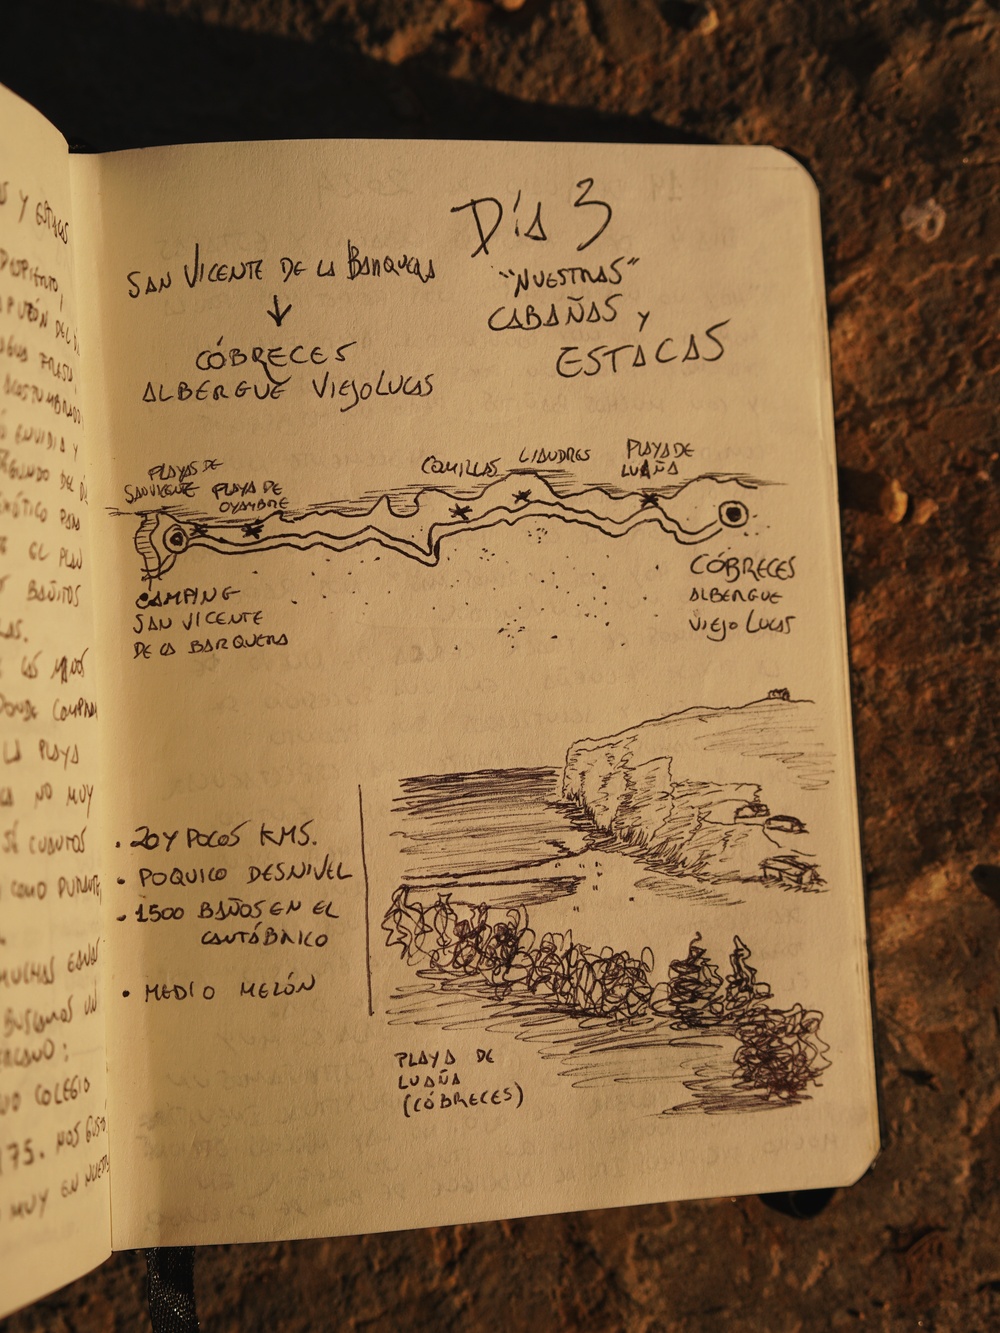 Día 3
SAN VICENTE DE LA BARQUERA
↓
CÓBRECES
ALBERGUE VIEJO LUCAS
"NUESTRAS"
CABAÑAS Y
ESTACAS
PLAYAS DE
SAN VICENTE
PLAYA DE
OYAMBRE
COMILLAS
LIANDRES
PLAYA DE
LUAÑA
CAMPING
SAN VICENTE
DE LA BARQUERA
CÓBRECES
ALBERGUE
VIEJO LUCAS
• 20 Y POCOS KMS.
• POQUICO DESNIVEL
• 1500 BAÑOS EN EL
CANTÁBRICO
• MEDIO MELÓN
PLAYA DE
LUAÑA
(CÓBRECES)
Y ESTACAS
DEL
AGUA FRESCA
ACOSTUMBRADO
ENVIDIA Y
SEGUNDO DEL
PARA
EL PLAN
BAÑITOS
LAS MANOS
DONDE COMPRAR
LA PLAYA
NO MUY
SÉ CUANTOS
COMO DURANTE
MUCHAS GANAS
BUSCAMOS UN
COLEGIO
175. NOS
MUY EN